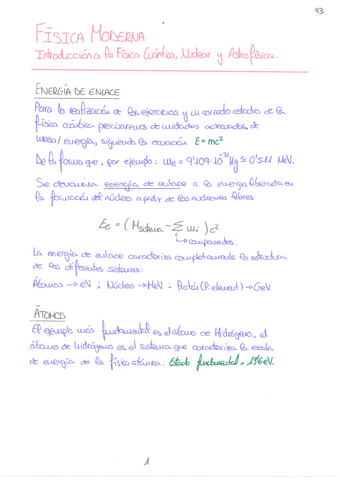 93
FÍSICA MODERNA
Introducción a la Física Cuántica, Nuclear y Astrofísica.
ENERGÍA DE ENLACE
Para la realización de los ejercicios y un correcto estudio de la
física cuántica precisaremos de unidades adecuadas, de
masa/energía, siguiendo la ecuación E=mc²
De forma que, por ejemplo: me = 9'109·10⁻³¹ Kg ≃ 0'511 MeV.
Se denomina energía de enlace a la energía liberada en
la formación del núcleo a partir de los nucleones libres
Ee = (Msistema - Σi mi) c²
↳ componentes.
La energía de enlace caracteriza completamente la estructura
de los diferentes sistemas:
Átomos → eV ; Núcleo → MeV ; (P. element) → GeV
ÁTOMO
El ejemplo más fundamental es el átomo de Hidrógeno, el
átomo de hidrógeno es el sistema que caracteriza la escala
de energía de la física atómica. Estado fundamental = 13'6 eV.
1